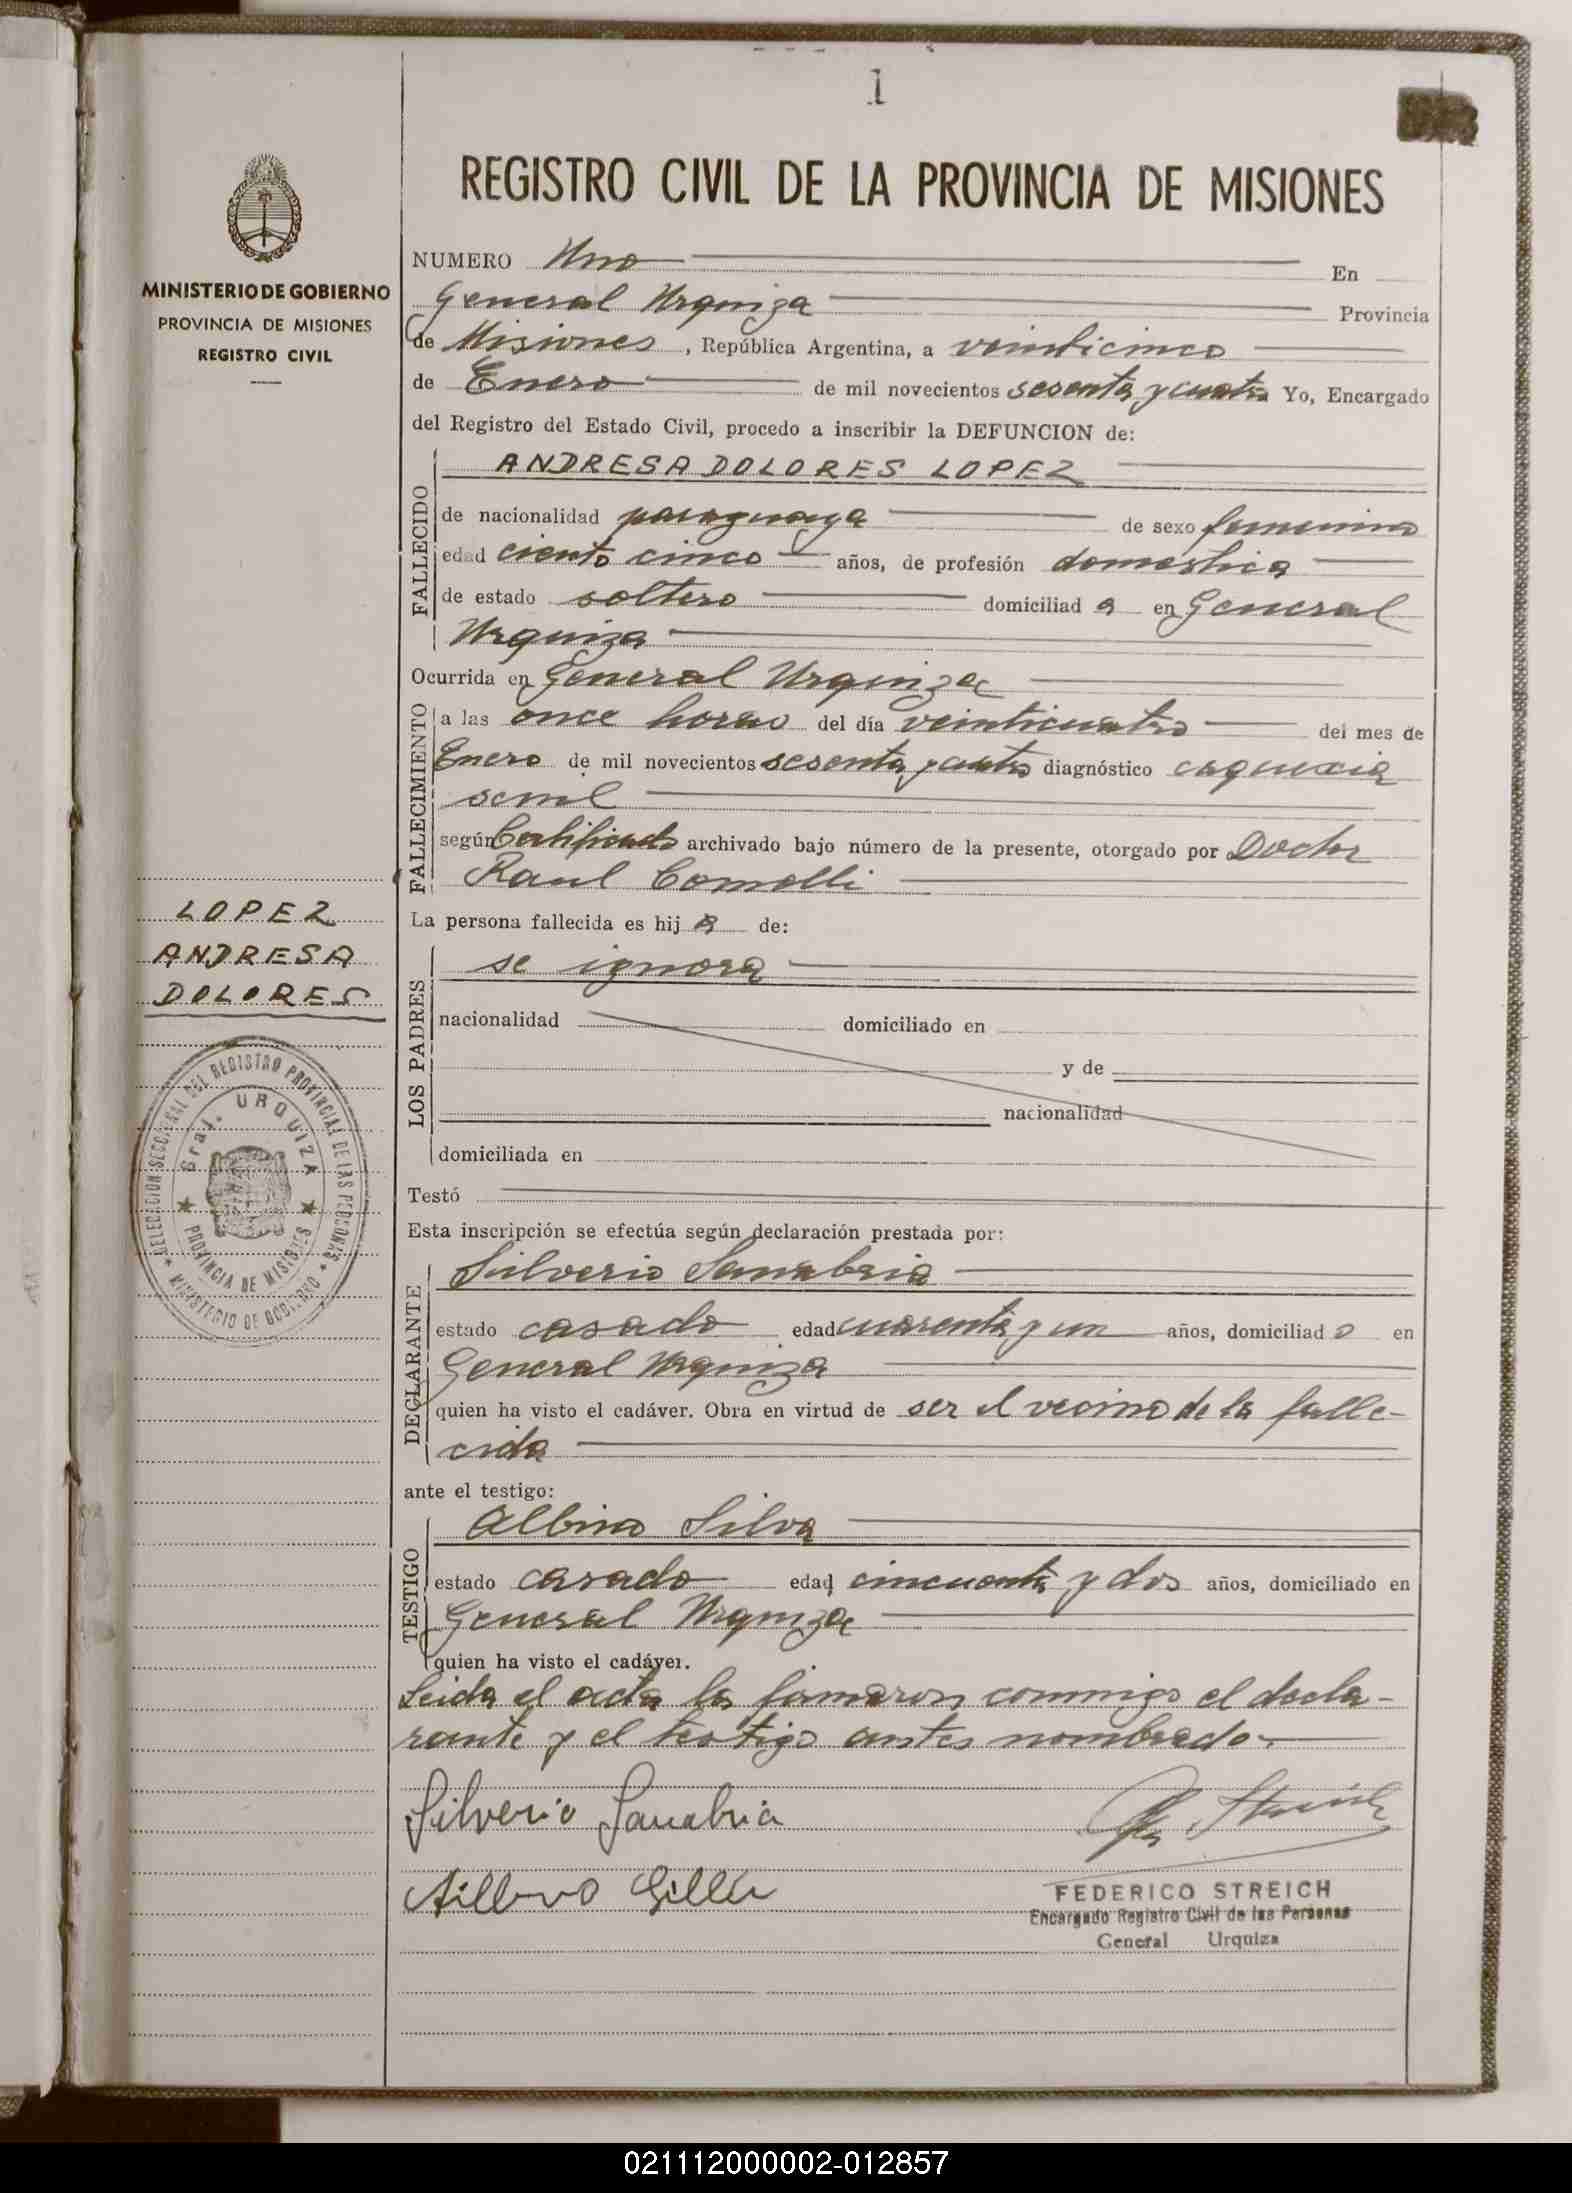 1
REGISTRO CIVIL DE LA PROVINCIA DE MISIONES
MINISTERIO DE GOBIERNO
PROVINCIA DE MISIONES
REGISTRO CIVIL
NUMERO Uno En
General Urquiza Provincia
de Misiones, República Argentina, a veinticinco
de Enero de mil novecientos sesenta y cuatro Yo, Encargado
del Registro del Estado Civil, procedo a inscribir la DEFUNCION de:
FALLECIDO
ANDRESA DOLORES LOPEZ
de nacionalidad paraguaya de sexo femenino
edad ciento cinco años, de profesión domestica
de estado soltero domiciliad a en General
Urquiza
Ocurrida en General Urquiza
FALLECIMIENTO
a las once horas del día veinticuatro del mes de
Enero de mil novecientos sesenta y cuatro diagnóstico caquexia
senil
según Certificado archivado bajo número de la presente, otorgado por Doctor
Raul Comelli
LOPEZ
ANDRESA
DOLORES
La persona fallecida es hij a de:
LOS PADRES
se ignora
nacionalidad domiciliado en
y de
nacionalidad
domiciliada en
DELEGACION SECCIONAL DEL REGISTRO PROVINCIAL DE LAS PERSONAS
Gral. URQUIZA
PROVINCIA DE MISIONES
MINISTERIO DE GOBIERNO
Testó
Esta inscripción se efectúa según declaración prestada por:
DECLARANTE
Silverio Sanabria
estado casado edad cuarenta y un años, domiciliad o en
General Urquiza
quien ha visto el cadáver. Obra en virtud de ser el vecino de la falle-
cida
ante el testigo:
TESTIGO
Albino Silva
estado casado edad cincuenta y dos años, domiciliado en
General Urquiza
quien ha visto el cadáver.
Leida el acta la firmaron conmigo el decla-
rante y el testigo antes nombrado.
Silverio Sanabria
FEDERICO STREICH
Encargado Registro Civil de las Personas
General Urquiza
021112000002-012857